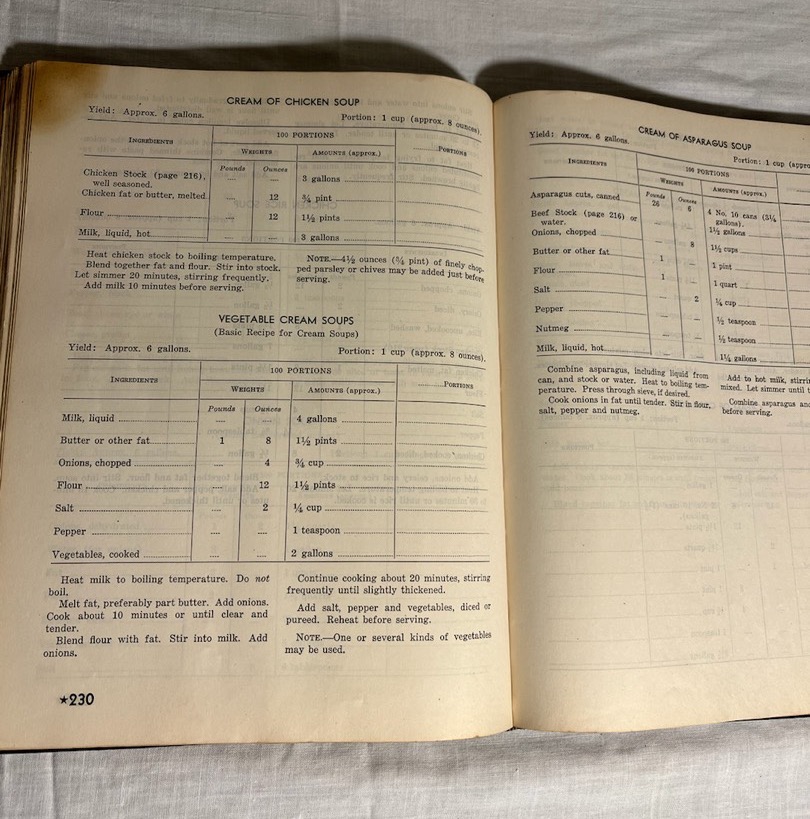 CREAM OF CHICKEN SOUP
Yield: Approx. 6 gallons. Portion: 1 cup (approx. 8 ounces).
INGREDIENTS 100 PORTIONS ..........PORTIONS
WEIGHTS AMOUNTS (approx.)
Pounds Ounces
Chicken Stock (page 216), .... .... 3 gallons
well seasoned.
Chicken fat or butter, melted. .... 12 ¾ pint
Flour .... 12 1½ pints
Milk, liquid, hot .... .... 3 gallons
Heat chicken stock to boiling temperature.
Blend together fat and flour. Stir into stock.
Let simmer 20 minutes, stirring frequently.
Add milk 10 minutes before serving.
NOTE.—4½ ounces (¾ pint) of finely chop-
ped parsley or chives may be added just before
serving.
VEGETABLE CREAM SOUPS
(Basic Recipe for Cream Soups)
Yield: Approx. 6 gallons. Portion: 1 cup (approx. 8 ounces).
INGREDIENTS 100 PORTIONS ..........PORTIONS
WEIGHTS AMOUNTS (approx.)
Pounds Ounces
Milk, liquid .... .... 4 gallons
Butter or other fat 1 8 1½ pints
Onions, chopped 4 ¾ cup
Flour .... 12 1½ pints
Salt .... 2 ¼ cup
Pepper .... .... 1 teaspoon
Vegetables, cooked .... .... 2 gallons
Heat milk to boiling temperature. Do not
boil.
Melt fat, preferably part butter. Add onions.
Cook about 10 minutes or until clear and
tender.
Blend flour with fat. Stir into milk. Add
onions.
Continue cooking about 20 minutes, stirring
frequently until slightly thickened.
Add salt, pepper and vegetables, diced or
pureed. Reheat before serving.
NOTE.—One or several kinds of vegetables
may be used.
★230
CREAM OF ASPARAGUS SOUP
Yield: Approx. 6 gallons. Portion: 1 cup (appro
INGREDIENTS 100 PORTIONS
WEIGHTS AMOUNTS (approx.)
Pounds Ounces
Asparagus cuts, canned 26 6 4 No. 10 cans (3¼
gallons).
Beef Stock (page 216) or 1½ gallons
water.
Onions, chopped 8 1½ cups
Butter or other fat 1 1 pint
Flour 1 1 quart
Salt 2 ¼ cup
Pepper ½ teaspoon
Nutmeg ½ teaspoon
Milk, liquid, hot 1¼ gallons
Combine asparagus, including liquid from
can, and stock or water. Heat to boiling tem-
perature. Press through sieve, if desired.
Cook onions in fat until tender. Stir in flour,
salt, pepper and nutmeg.
Add to hot milk, stirrin
mixed. Let simmer until t
Combine asparagus and
before serving.